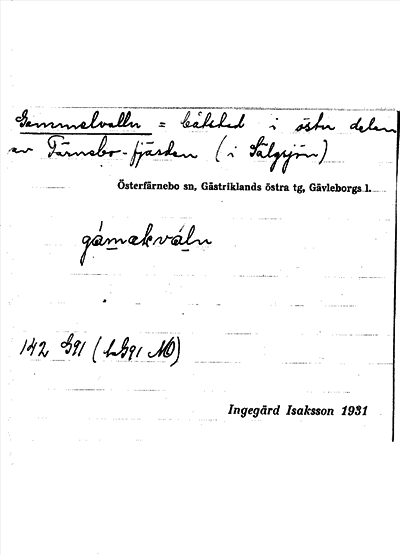 Gammelvalln = båtstad i östra delen
av Färnebo-fjärden (i Sälgsjön)
Österfärnebo sn, Gästriklands östra tg, Gävleborgs l.
gámakváln
142 G91 (b G91 NO)
Ingegärd Isaksson 1931